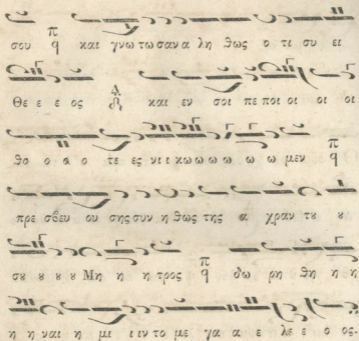 σου π q και γνω τω σαν α λη θως ο τι συ ει
Θε ε ε ος Δ και εν σοι πε ποι οι οι οι
θο ο α ο τε ες νι ι κω ω ω ω ω ω μεν π q
πρε σβευ ου σης συν η θως της α χραν του υ
σου υ υ υ Μη η η τρος π q δω ρη θη η η
η η ναι η μι ι ιν το με γα α ε λε ε ο ος.